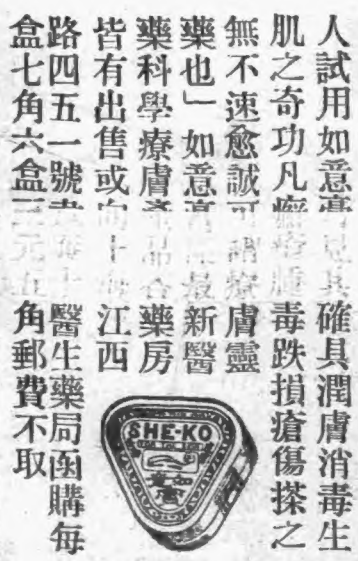 人試用如意膏 確具潤膚消毒生
肌之奇功凡 毒跌損瘡傷搽之
無不速愈誠可 膚靈
藥也」如意膏 最新醫
藥科學療膚 品 藥房
皆有出售或向 江西
路四五一號 醫生藥局函購每
盒七角六盒三元五角郵費不取
SHE-KO
如意膏